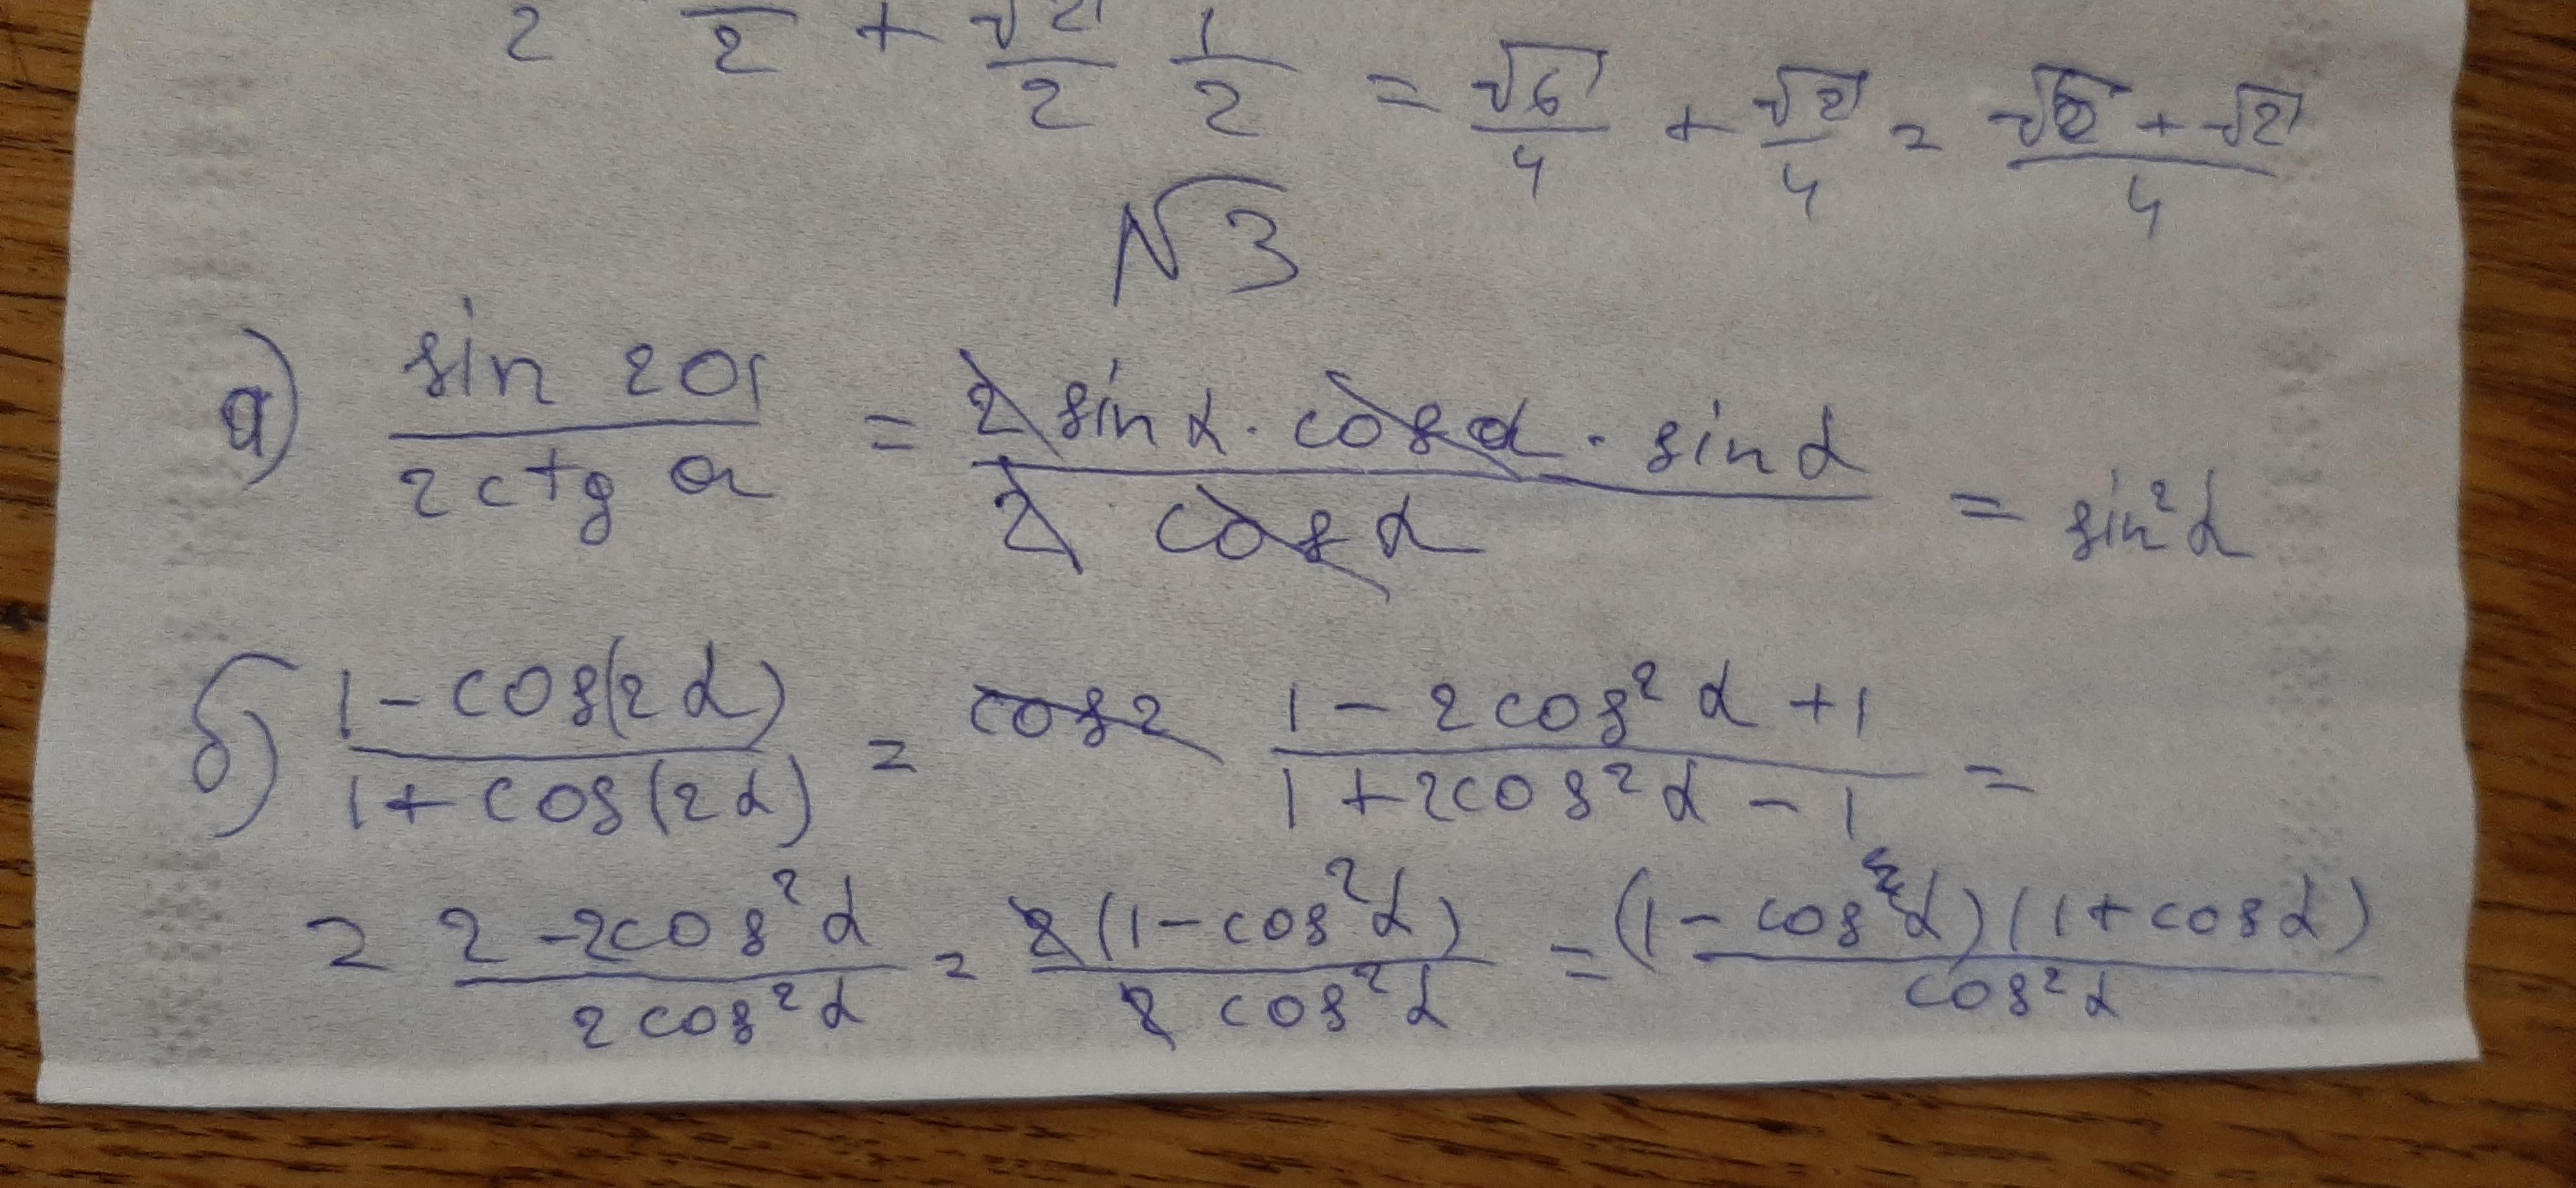 2 2 + √2/2 1/2 = √6/4 + √2/4 = √6 + √2/4
N3
а) sin 2α/2ctg α = 2 sin α · cos α · sin α/2 · cos α = sin² α
б) 1 - cos(2α)/1 + cos(2α) = cos2 1 - 2cos² α + 1/1 + 2cos² α - 1 =
= 2 - 2cos² α/2cos² α = 2(1 - cos² α)/2 cos² α = (1 - cos α)(1 + cos α)/cos² α